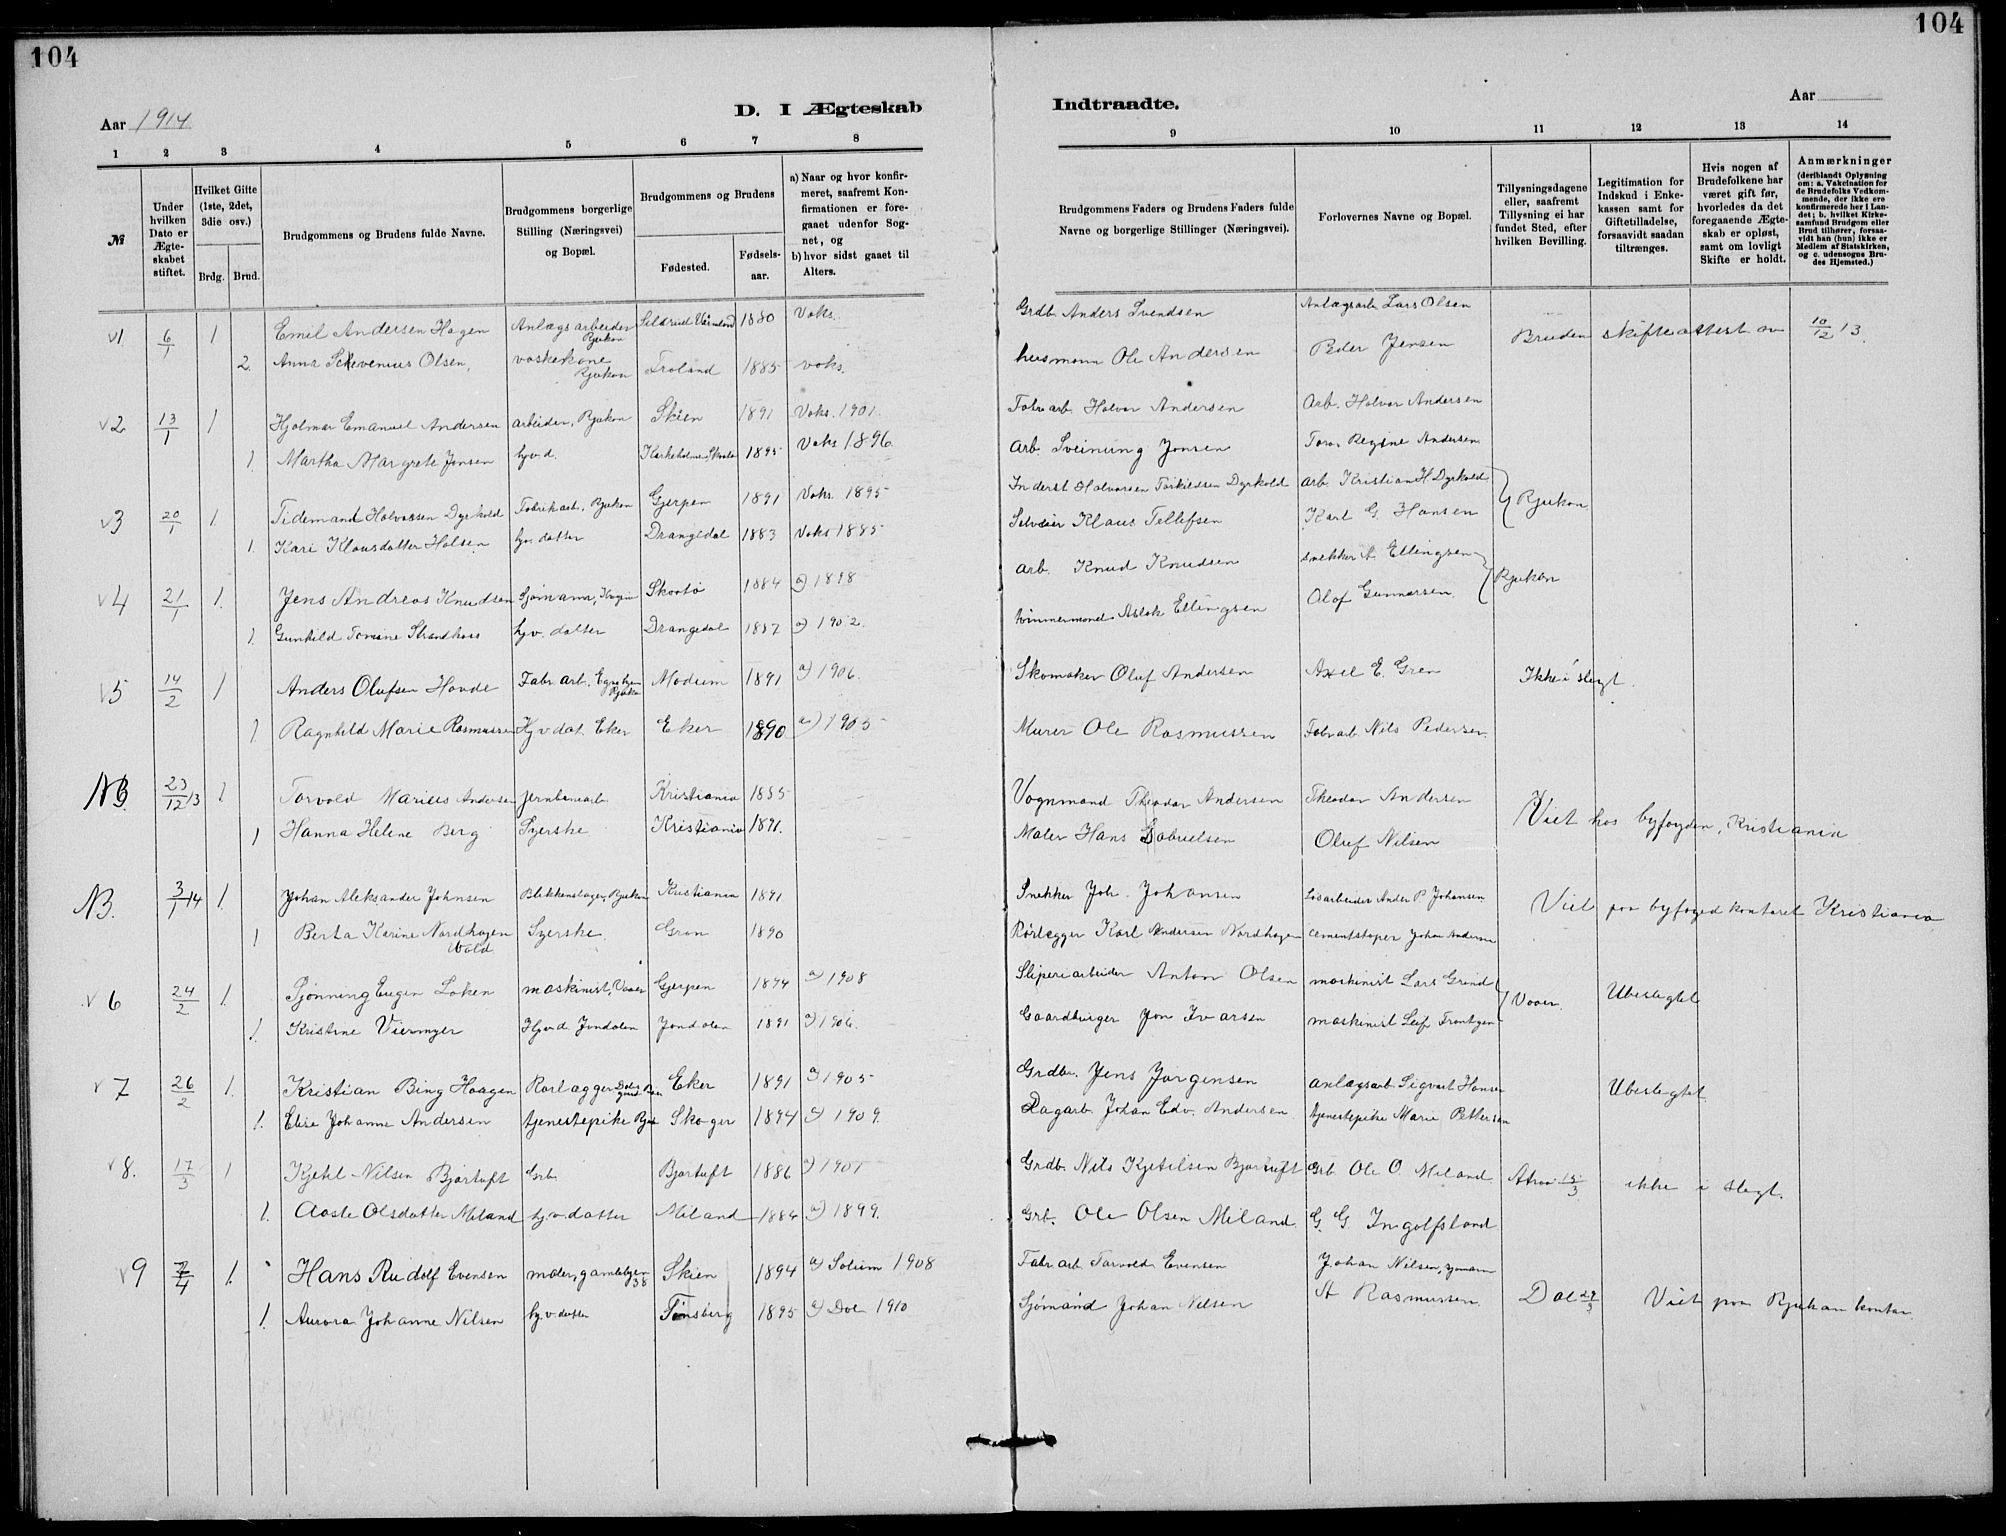 104
104
Aar 1914
D. I Ægteskab
Indtraadte.
Aar
1 2 3 4 5 6 7 8 9 10 11 12 13 14
№
Under hvilken Dato er Ægteskabet stiftet.
Hvilket Gifte (1ste, 2det, 3die osv.)
Brdg. Brud.
Brudgommens og Brudens fulde Navne.
Brudgommens borgerlige Stilling (Næringsvei) og Bopæl.
Brudgommens og Brudens
Fødested.
Fødselsaar.
a) Naar og hvor konfirmeret, saafremt Konfirmationen er foregaaet udenfor Sognet, og
b) hvor sidst gaaet til Alters.
Brudgommens Faders og Brudens Faders fulde Navne og borgerlige Stillinger (Næringsvei).
Forlovernes Navne og Bopæl.
Tillysningsdagene eller, saafremt Tillysning ei har fundet Sted, efter hvilken Bevilling.
Legitimation for Indskud i Enkekassen samt for Giftetilladelse, forsaavidt saadan tiltrænges.
Hvis nogen af Brudefolkene har været gift før, hvorledes da det foregaaende Ægteskab er opløst, samt om lovligt Skifte er holdt.
Anmærkninger (deriblandt Oplysning om: a. Vakcination for de Brudefolks Vedkommende, der ikke ere konfirmerede her i Landet; b. hvilket Kirkesamfund Brudgom eller Brud tilhører, forsaavidt han (hun) ikke er Medlem af Statskirken, og c. udensogns Brudes Hjemsted.)
v1 6/1 1 Emil Andersen Hagen Anlægsarbeider Rjukan 1880 Voks. Grdb Anders Svendsen Anlægsarb Lars Olsen
2. Anna Olsen, vaskekone Rjukan Froland 1885 voks. husmann Ole Andersen Peder Jensen Bruden skifteattest av 10/12 13.
v2 13/1 1 Hjalmar Emanuel Andersen arbeider, Rjukan Skien 1891 Voks. 1901. Fabr arb. Halvor Andersen Arb. Halvor Andersen
1. Martha Margrete Jensen hjv.d. 1895 Voks 1896. Arb. Sveinung Jonsen Regine Andersen
v3 20/1 1 Tidemand Halvorsen Dyrkold Fabrikarb, Rjukan Gjerpen 1891 Voks. 1895 Inderst Halvorsen Torkildsen Dyrkold arb. Kristian H Dyrkold Rjukan
1. Kari Klausdatter Holsen hjv. datter Drangedal 1883 Voks 1885 Selveier Klaus Tellefsen Karl G. Hansen
v4 21/1 1. Jens Andreas Knudsen Sjømann, Skaatø 1884 a) 1898 arb. Knud Knudsen snekker A. Ellingsen Rjukan
1. Gunhild Tomine Strandhaas hjv. datter Drangedal 1887 a) 1902. tømmermand Aslak Ellingsen Olaf Gunnarsen.
v5 14/2 1 Anders Olufsen Hovde Fabr. arb. Egnehjem Rjukan Modum 1891 a) 1906. Skomaker Oluf Andersen Axel E. Gren Ikke i slegt.
1 Ragnhild Marie Rasmussen Hjv dat. Eker Eker 1890 a) 1905 Murer Ole Rasmussen Fabr arb. Nils Pedersen.
NB. 23/12 13 1. Torvald Marius Andersen jernbanearb. Kristiania 1885 Vognmand Theodor Andersen Theodor Andersen
1 Hanna Helene Berg Syerske Kristiania 1891. Maler Hans Gabrielsen Oluf Nilsen Viet hos byfogden, Kristiania
NB. 3/1 14 1. Johan Aleksander Johnsen Blikkenslager, Rjukan Kristiania 1891 Snekker Joh. Johansen Løsarbeider Ander P Johansen Viet paa byfogedkontoret Kristiania
1 Berta Karine Nordhagen Wold Syerske. Gran 1890 Rørlægger Karl Andersen Nordhagen cementstøper Johan Andersen
v 6 24/2 1. Pjønning Eugen Løken maskinist, Vaaer Gjerpen 1894 a) 1908 Sliperiarbeider Anton Olsen maskinist Lars Grind Vaaer. Ubeslegtet
1. Kristine Viermyr Hjv.d. Jondalen Jondalen 1891 a) 1906. Gaardbruger Jon Ivarsen maskinist Leif
v 7 26/2 1. Kristian Bing Haagen Rørlægger Eker 1891 a) 1905 Grdbr. Jens Jørgensen anlægsarb. Sigvart Hansen Ubeslegtet
1. Elise Johanne Andersen tjenestepike Skoger 1894 a) 1909. Dagarb. Johan Edv. Andersen tjenestepike Marie Pettersen
v 8. 17/3 1 Kjetil Nilsen Bjørtuft Grb. Bjørtuft 1886 a) 1901 Grdb. Nils Kjetilsen Bjørtuft Grb. Ole O Miland Atraa 15/3 ikke i slegt.
1. Aaste Olsdatter Miland hjv.datter Miland 1884 a) 1899. Grb. Ole Olsen Miland G. G Ingolfsland
v 9 /4 1. Hans Rudolf Evensen maler, gamlebyen 38 Skien 1894 a) Solum 1908 Fabr. arb. Torvald Evensen Johan Nilsen,
1. Aurora Johanne Nilsen hjv datter Tønsberg 1895 a) Dal 1910 Sjømand Johan Nilsen A Rasmussen Dal 29/3 Viet paa Rjukan kontor.